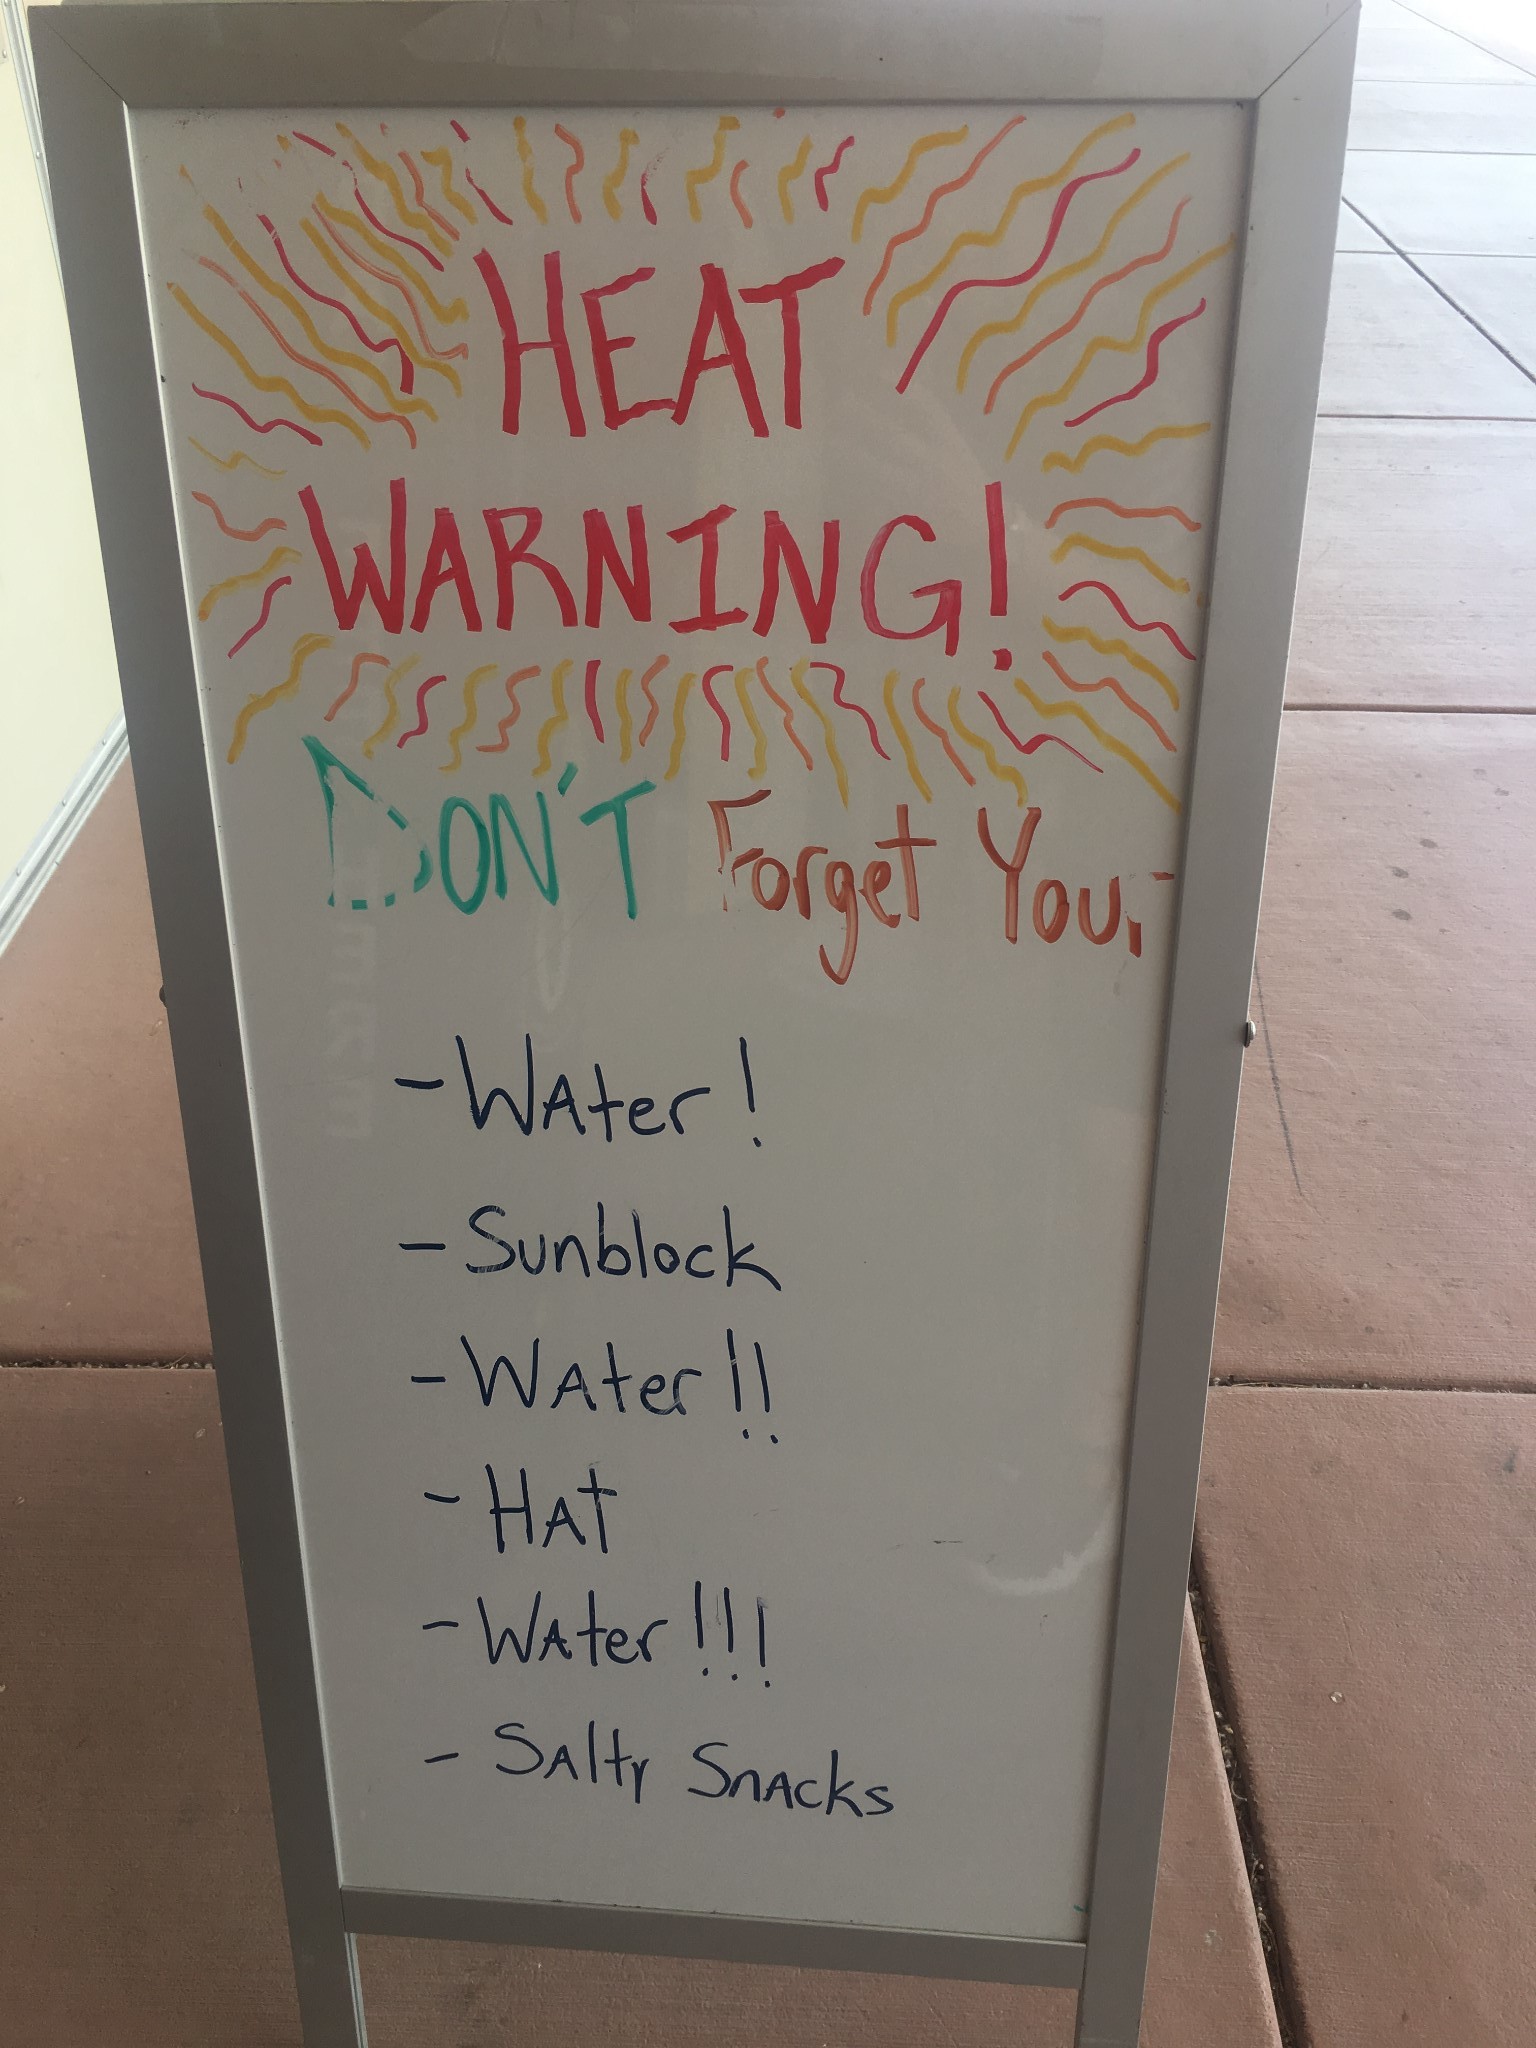 HEAT
WARNING!
DON'T Forget Your
- Water!
- Sunblock
- Water!!
- Hat
- Water!!!
- Salty Snacks